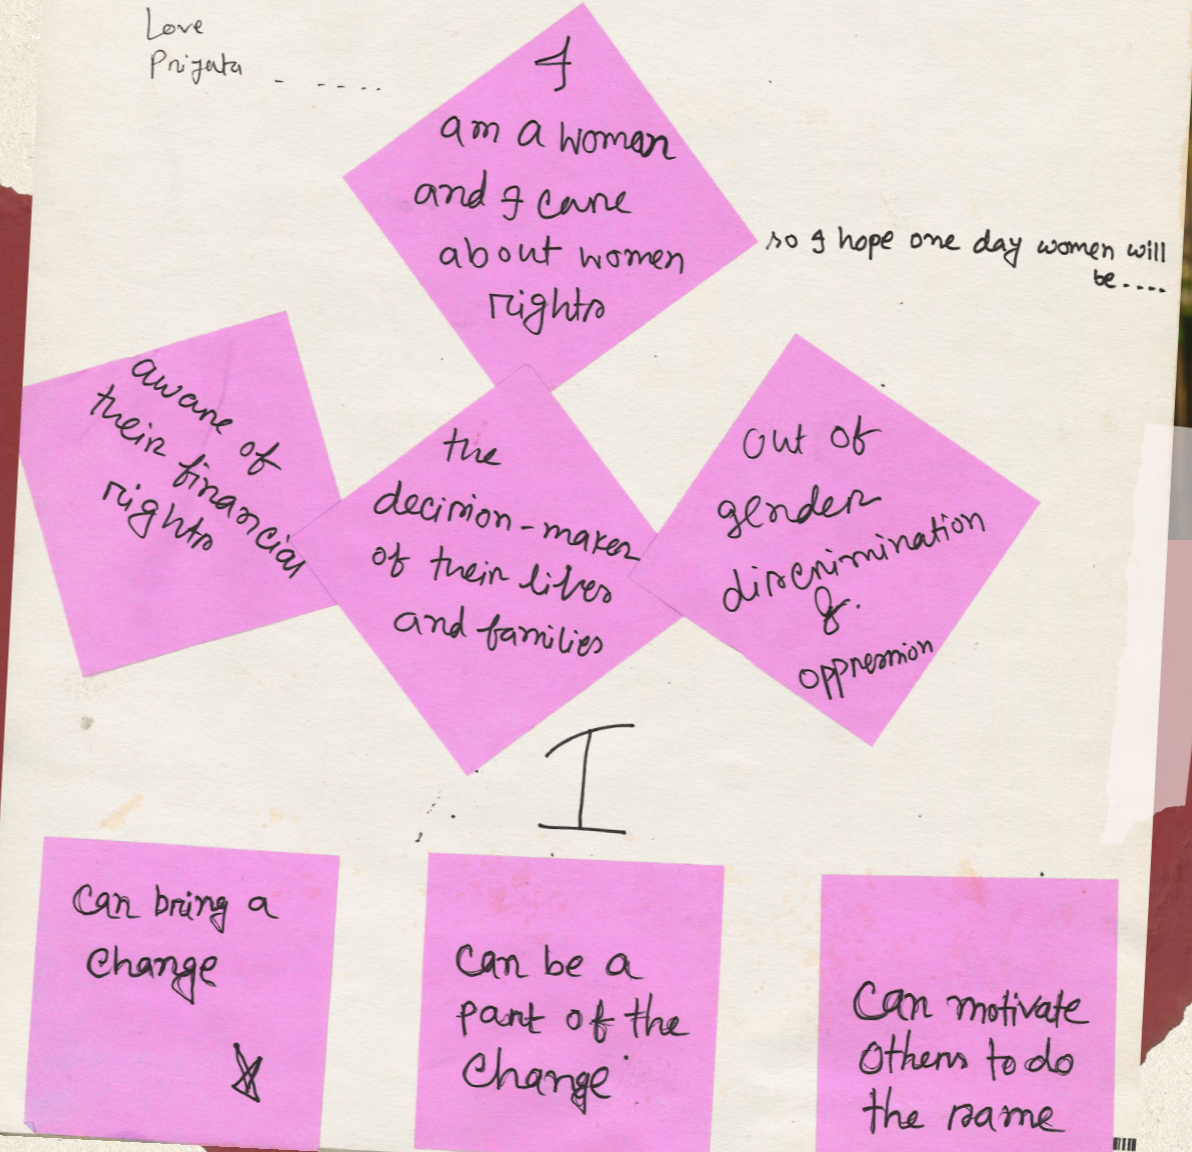 Love
Priyata - - - - -
I
am a woman
and I care
about women
rights
so I hope one day women will
be....
aware of
their financial
rights
the
decision-maker
of their lives
and families
out of
gender
discrimination
&
oppression
I
Can bring a
change
Can be a
part of the
change
Can motivate
others to do
the same